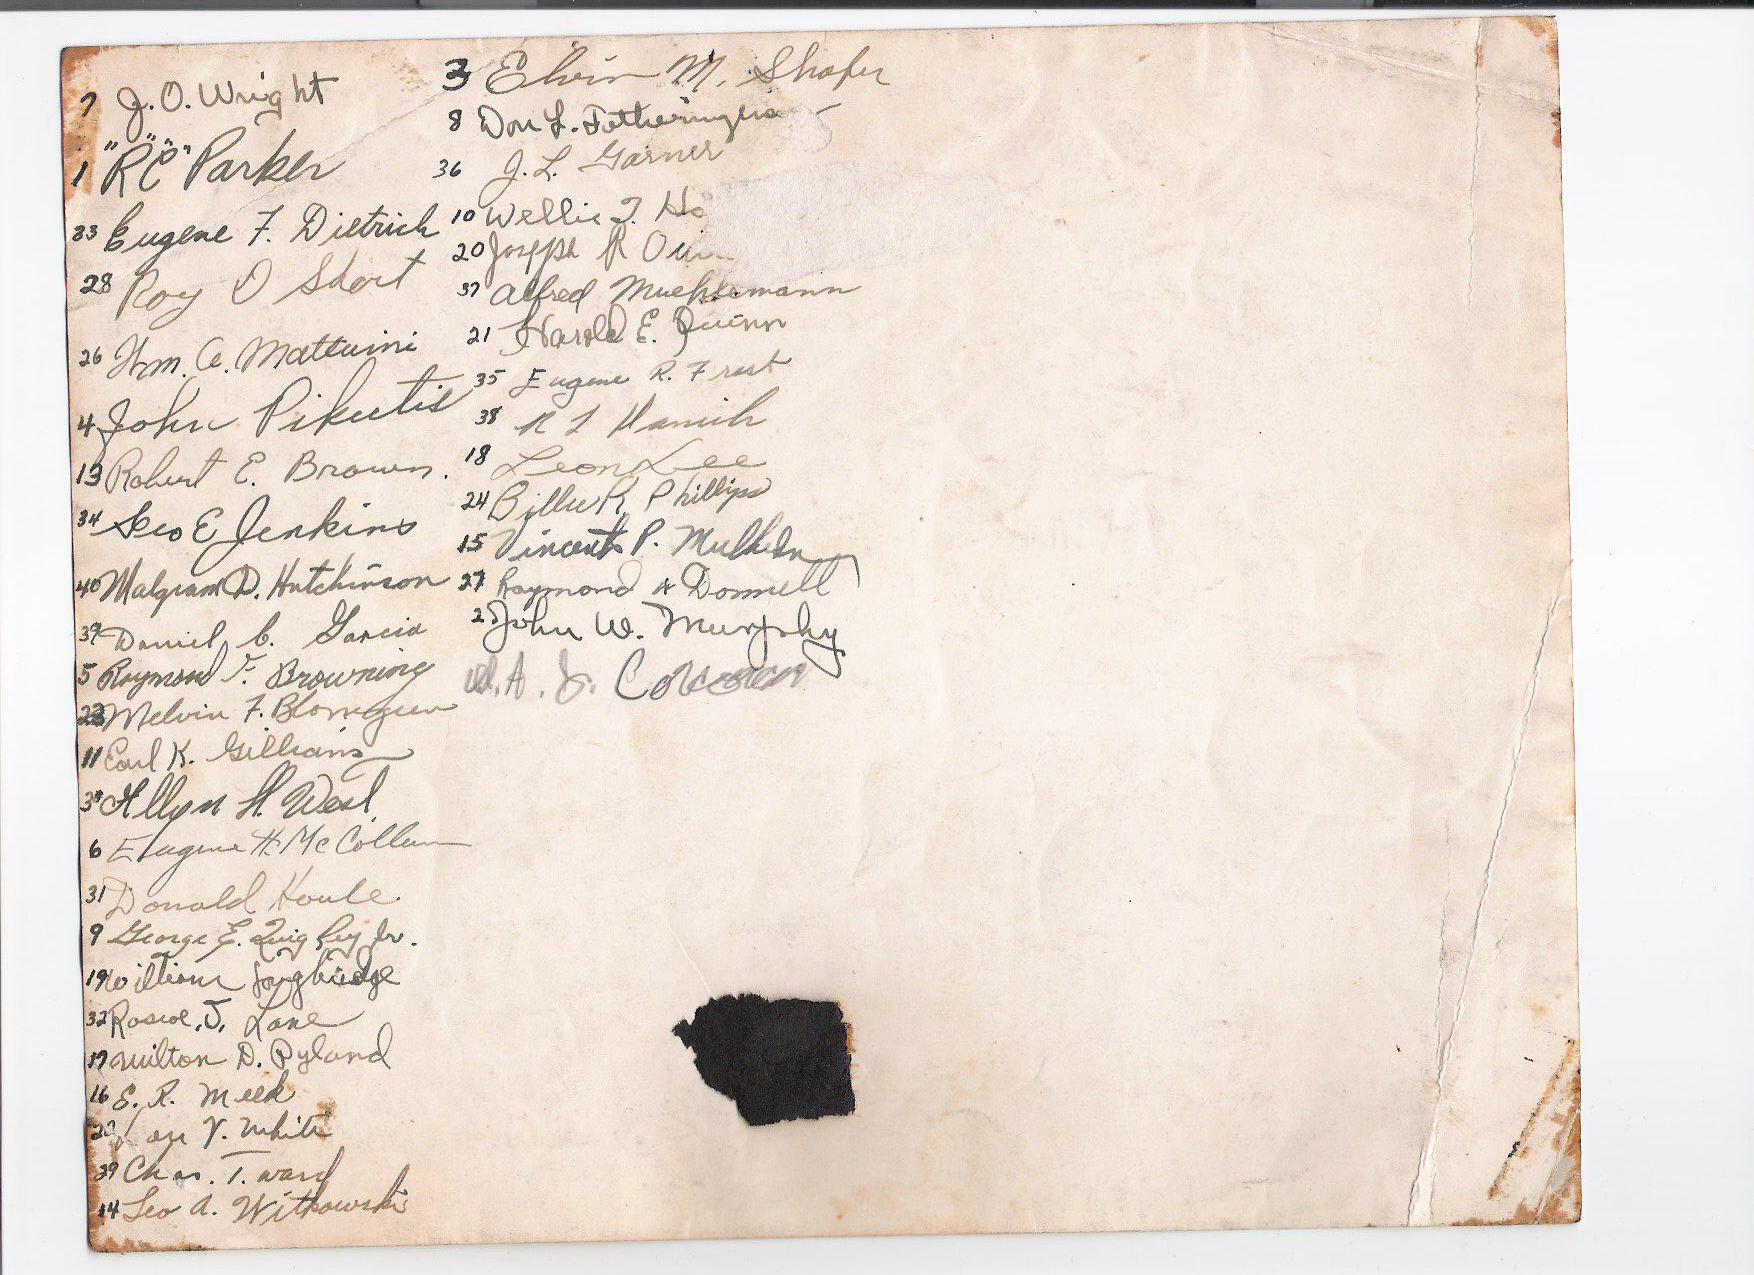 7 J. O. Wright
1 "R" "C" Parker
33 Eugene F. Dietrich
28 Roy D Short
26 Wm. A. Matteini
4 John Pikutis
13 Robert E. Brown.
34 Geo E Jenkins
40 D. Hutchinson
Daniel C. Garcia
5 Raymond F. Browning
23 Melvin F.
11 Earl K. Gilliams
Allyn H. West
6 Eugene H. McCollum
31 Donald Houle
9 George E. Quigley Jr.
19 William
32 Roscoe J. Lane
17 Milton D. Ryland
16 E. R. Meek
V. White
39 Chas. T. Ward
14 Leo A. Witkowski
3 Elvin M. Shafer
8 Don L.
36 J. L. Garner
10
20 Joseph R
37 Alfred Muehlemann
21 Harold E. Quinn
35 Eugene R. Frest
38 R L
18 Leon Lee
24 Billie R. Phillips
15 Vincent P.
27 Raymond A Donnell
2 John W. Murphy
A. J. Corcoran